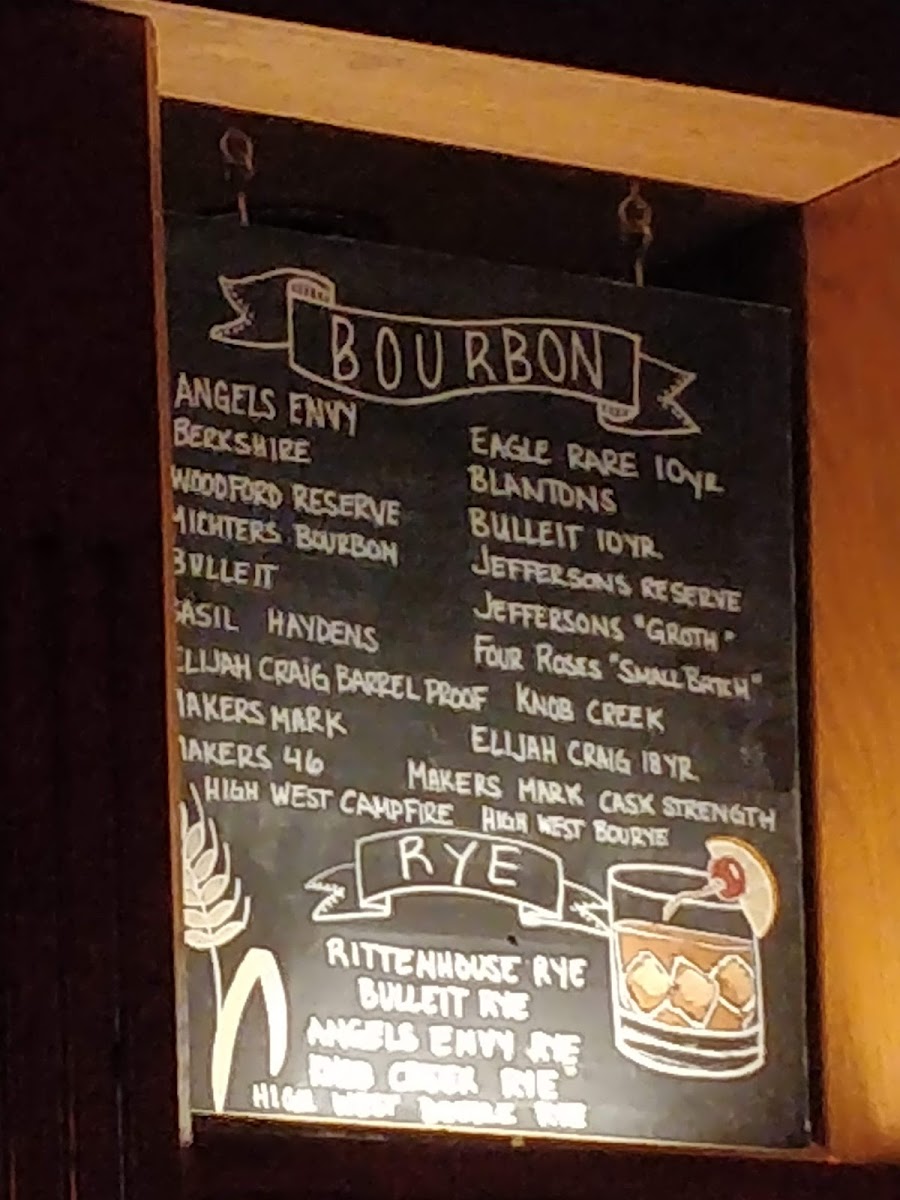 BOURBON
ANGELS ENVY
BERKSHIRE
WOODFORD RESERVE
MICHTERS BOURBON
BULLEIT
BASIL HAYDENS
ELIJAH CRAIG BARREL PROOF
MAKERS MARK
MAKERS 46
HIGH WEST CAMPFIRE
EAGLE RARE 10YR
BLANTONS
BULLEIT 10YR
JEFFERSONS RESERVE
JEFFERSONS "GROTH"
FOUR ROSES "SMALL BATCH"
KNOB CREEK
ELIJAH CRAIG 18YR
MAKERS MARK CASK STRENGTH
HIGH WEST BOURYE
RYE
RITTENHOUSE RYE
BULLEIT RYE
ANGELS ENVY RYE
KNOB CREEK RYE
HIGH WEST DOUBLE RYE